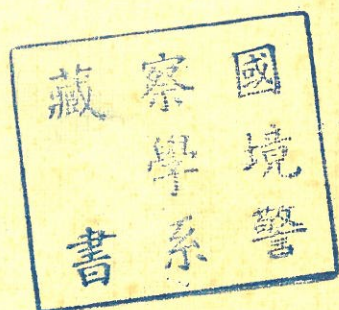 國境警
察學系
藏書